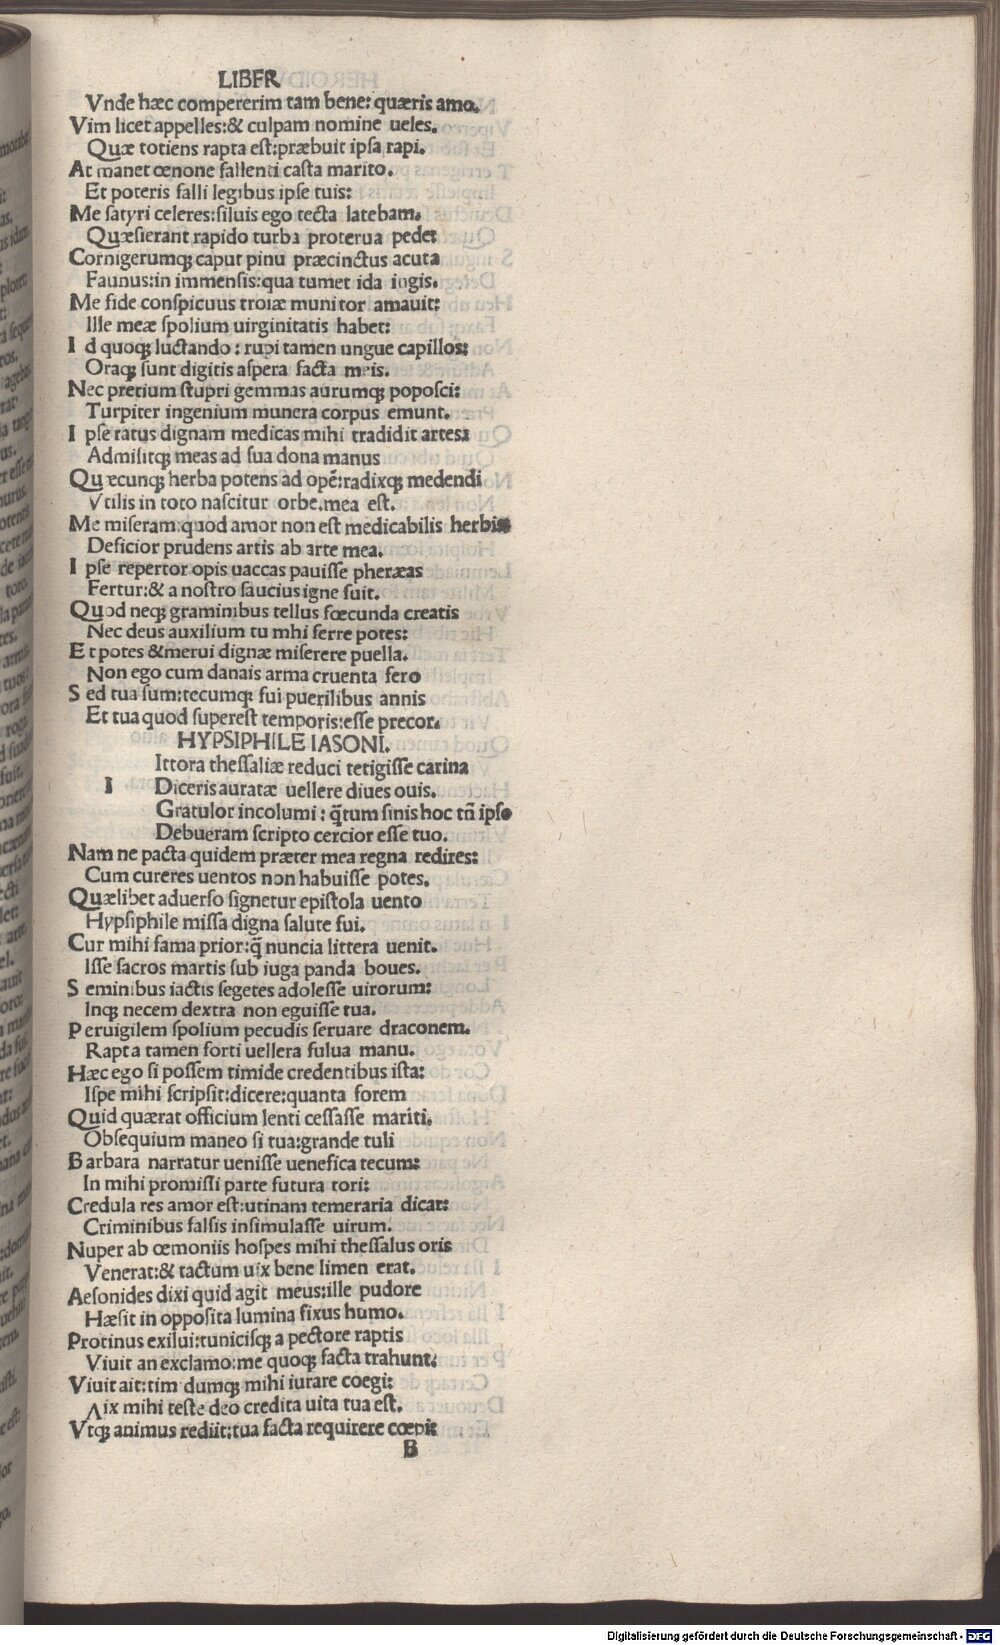 LIBER
Vnde hæc compererim tam bene: quæris amo.
Vim licet appelles:& culpam nomine ueles.
Quæ totiens rapta est:præbuit ipsa rapi.
At manet œnone fallenti casta marito.
Et poteris falli legibus ipse tuis:
Me satyri celeres:siluis ego tecta latebam.
Quæsierant rapido turba proterua pede:
Cornigerumqꝫ caput pinu præcinctus acuta
Faunus:in immensis:qua tumet ida iugis.
Me fide conspicuus troiæ munitor amauit:
Ille meæ spolium uirginitatis habet:
I d quoqꝫ luctando : rupi tamen ungue capillos:
Oraqꝫ sunt digitis aspera facta meis.
Nec precium stupri gemmas aurumqꝫ poposci:
Turpiter ingenium munera corpus emunt.
I pse ratus dignam medicas mihi tradidit artesa
Admisitqꝫ meas ad sua dona manus
Quæcunqꝫ herba potens ad opē:radixqꝫ medendi
Vtilis in toto nascitur orbe.mea est.
Me miseram:quod amor non est medicabilis herbis
Deficior prudens artis ab arte mea.
I pse repertor opis uaccas pauisse pheræas
Fertur:& a nostro saucius igne fuit.
Quod neqꝫ graminibus tellus fœcunda creatis
Nec deus auxilium tu mhi ferre potes:
E t potes &merui dignæ miserere puella.
Non ego cum danais arma cruenta fero
S ed tua sum:tecumqꝫ fui puerilibus annis
Et tua quod superest temporis:esse precor.
HYPSIPHILE IASONI.
Ittora thessaliæ reduci tetigisse carina
I Diceris auratæ uellere diues ouis.
Gratulor incolumi : q̄tum sinis hoc tn̄ ipso
Debueram scripto cercior esse tuo.
Nam ne pacta quidem præter mea regna redires:
Cum cureres uentos non habuisse potes.
Quælibet aduerso signetur epistola uento
Hypsiphile missa digna salute fui.
Cur mihi fama prior:q̄ nuncia littera uenit.
Isse sacros martis sub iuga panda boues.
S eminibus iactis segetes adolesse uirorum:
Inqꝫ necem dextra non eguisse tua.
P eruigilem spolium pecudis seruare draconem.
Rapta tamen forti uellera fulua manu.
Hæc ego si possem timide credentibus ista:
Ispe mihi scripsit:dicere:quanta forem
Quid quærat officium lenti cessasse mariti.
Obsequium maneo si tua:grande tuli
B arbara narratur uenisse uenefica tecum:
In mihi promissi parte futura tori:
Credula res amor est:utinam temeraria dicar:
Criminibus falsis insimulasse uirum.
Nuper ab œmoniis hospes mihi thessalus oris
Venerat:& tactum uix bene limen erat.
Aesonides dixi quid agit meus:ille pudore
Hæsit in opposita lumina fixus humo.
Protinus exilui:tunicisqꝫ a pectore raptis
Viuit an exclamo:me quoqꝫ facta trahunt:
Viuit ait:tim dumqꝫ mihi iurare coegi:
Vix mihi teste deo credita uita tua est.
Vtqꝫ animus rediit:tua facta requirere cœpit
B
Digitalisierung gefördert durch die Deutsche Forschungsgemeinschaft - DFG